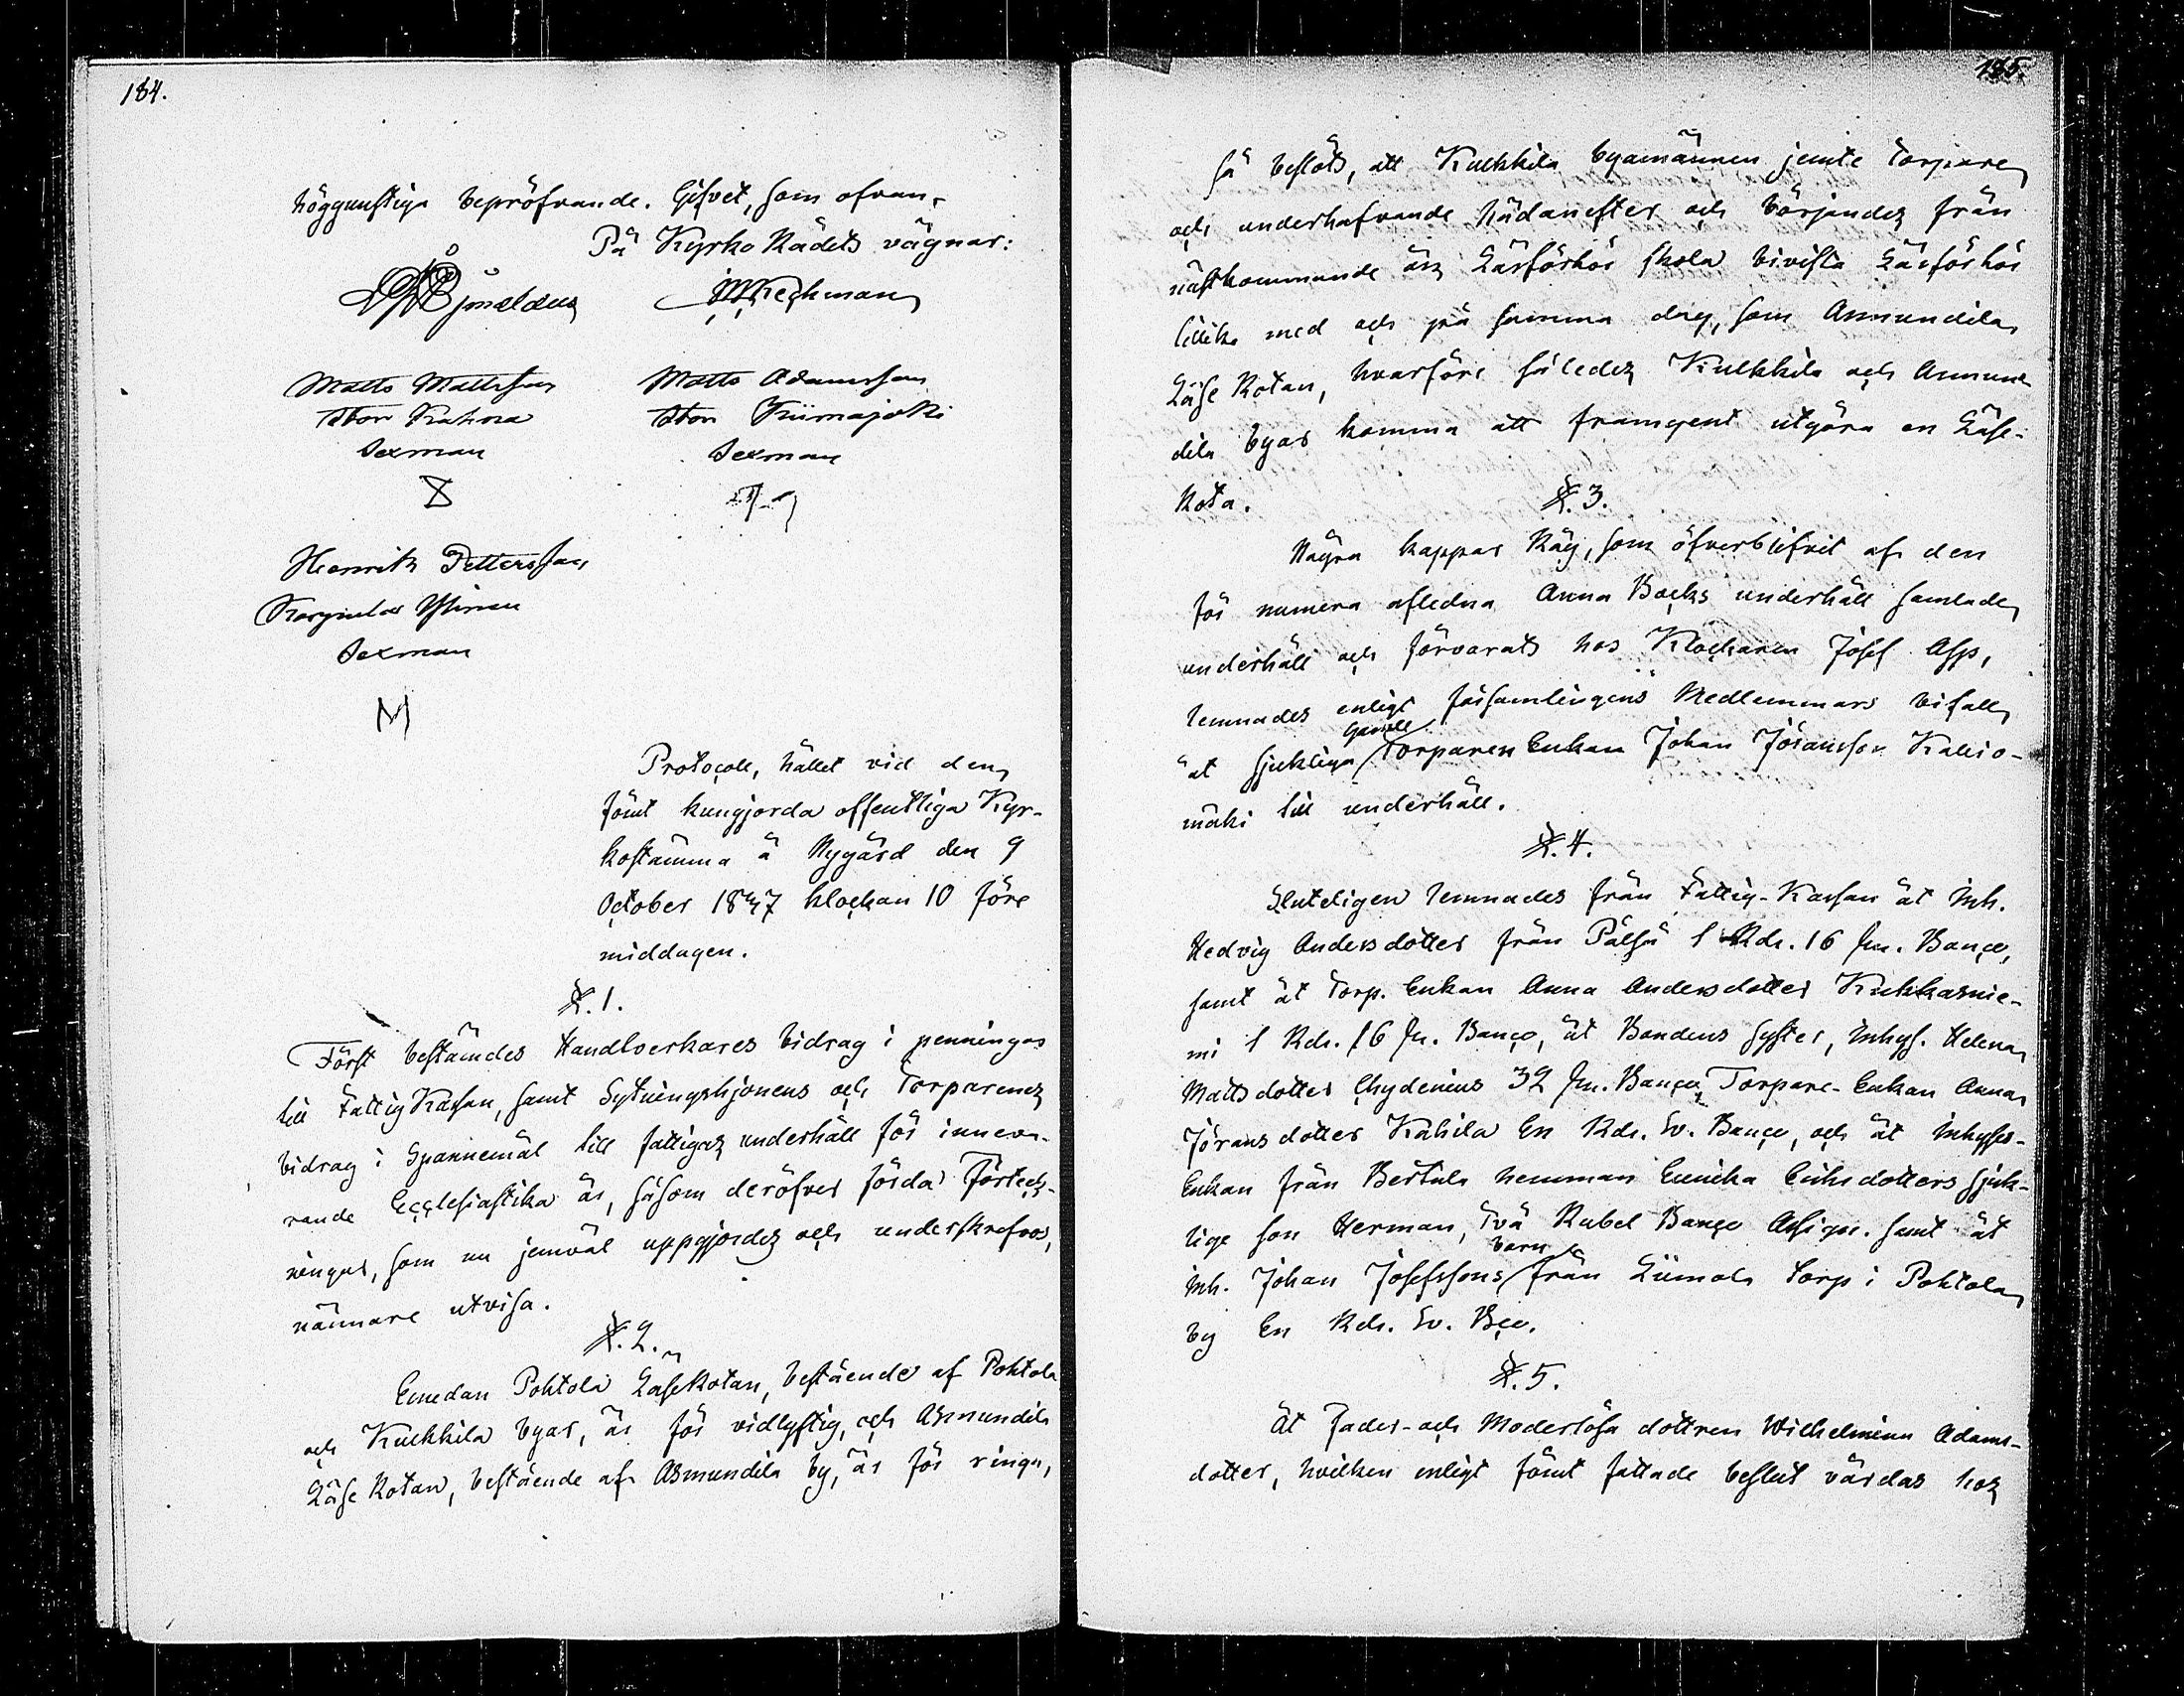 184.
höggunstiga bepröfvande. Gifvet, som ofvan.
På Kyrko Rådets vägnar:
Matts Mattsson Matts Adamsson
Åbon Kahna Åbon Kiimajoki
Sexman Sexman
Henrik Pettersson
Sexman
Protocoll, hållet vid den
förut kungjorda offentliga Kyr-
kostämma å Nygård den 9
October 1847 klockan 10 före
middagen.
§. 1.
Först bestämdes Handtverkares bidrag i penningar
till Fattig Kassan, samt Sytningshjonens och Torparenes
bidrag i Spannemål till fattigas underhåll för inneva-
rande Ecclesiastika år, såsom deröfver förda Förteck-
ningar, som nu jemväl uppgjordes och underskrefvos,
närmare utvisa.
§. 2.
Emedan Pohtola Läsekotan, bestående af Pohtola
och Kulkkila byar, är för vidlyftig, och Asmundila
Läse Rotan, bestående af Asmundila by, är för ringa,
185.
så beslöts, att Kulkkila byamännen jemte Torpare
och underhafvande hädanefter och börjandes från
nästkommande års Läsförhör skola bivista Läsförhör
tillika med och på samma dag, som Asmundila
Läse Rotan, hvarföre således Kulkkila och Asmun-
dila byar komma att framgent utgöra en Läse-
Rota.
§. 3.
Några kappar Råg, som öfverblifvit af den
för numera afledna Anna Backs underhåll samlade
underhåll och förvarats hos Klockaren Josef Asp,
lemnades enligt församlingens Medlemmars bifall
gamle
åt sjukliga Torparen Enkan Johan Jöransson Kallio-
mäki till underhåll.
§. 4.
Sluteligen lemnades från Fattig-Kassan åt Inh.
Hedvig Andersdotter från Pålsu 1 Rdr. 16 sk. Banco,
samt åt Torp. Enkan Anna Andersdotter Kukkarnie-
mi 1 Rdr. 16 sk. Banco, åt Bondens syster, Inhys. Helena
Mattsdotter Chydenius 32 sk. Banco, Torpare-Enkan Anna
Jöransdotter Kahila En Rdr. Sv. Banco, och åt Inhyses-
Enkan från Bertula hemman Eunika Eriksdotters sjuk-
lige son Herman, två Rubel Banco Assign. samt åt
barn
Inh. Johan Josefssons från Liimola torp i Pohtola
by En Rdr. Sv. Bco.
§. 5.
Åt Fader- och Moderlösa dottren Wilhelmina Adams-
dotter, hvilken enligt förut fattade beslut vårdas hos